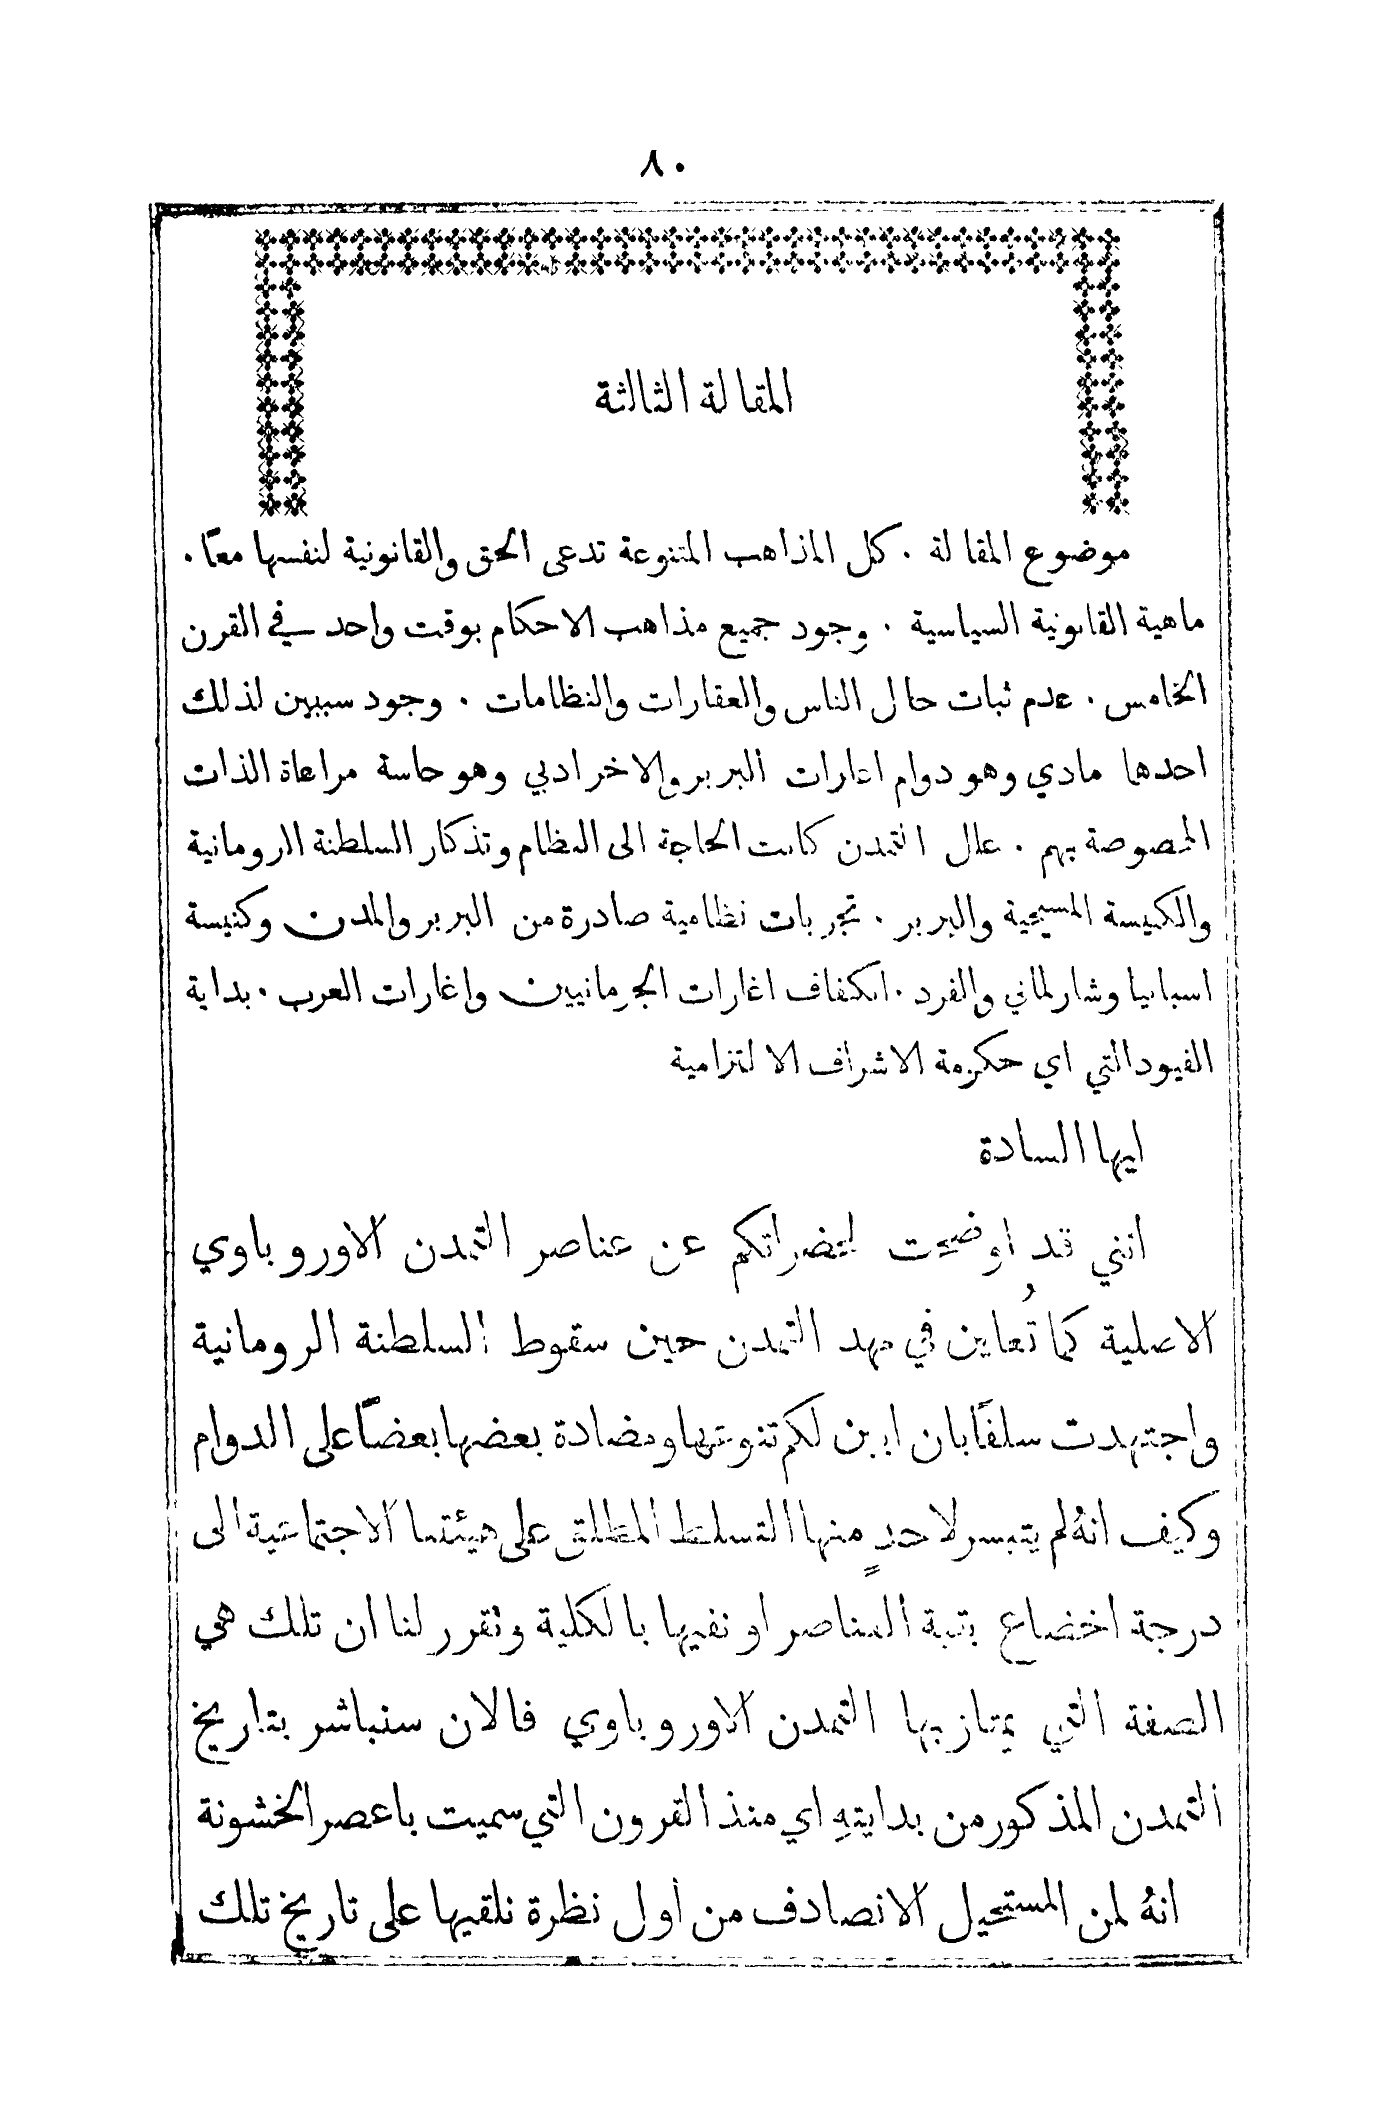 ٨٠
المقالة الثالثة
موضوع المقالة . كل المذاهب المتنوعة تدعى الحق والقانونية لنفسها معًا .
ماهية القانونية السياسية . وجود جميع مذاهب الاحكام بوقت واحد في القرن
الخامس . عدم ثبات حال الناس والعقارات والنظامات . وجود سببين لذلك
احدها مادي وهو دوام اغارات البربر والاخر ادبي وهو حاسة مراعاة الذات
المخصوصة بهم . علل التمدن كانت الحاجة الى النظام وتذكار السلطنة الرومانية
والكنيسة المسيحية والبربر . تجربات نظامية صادرة من البربر والمدن وكنيسة
اسبانيا وشارلماني والفرد . انكفاف اغارات الجرمانيين واغارات العرب . بداية
الفيودالتي اي حكومة الاشراف الالتزامية
ايها السادة
انني قد اوضحت لحضراتكم عن عناصر التمدن الاوروباوي
الاصلية كما تُعاين في مهد التمدن حين سقوط السلطنة الرومانية
واجتهدت سلفًا بان ابين لكم تنوعها ومضادة بعضها بعضًا على الدوام
وكيف انهُ لم يتيسر لاحدٍ منها التسلط المطلق على هيئتنا الاجتماعية الى
درجة اخضاع بقية العناصر او نفيها بالكلية وتقرر لنا ان تلك هي
الصفة التي يمتاز بها التمدن الاوروباوي فالان سنباشر بتاريخ
التمدن المذكور من بدايتهِ اي منذ القرون التي سميت باعصر الخشونة
انهُ لمن المستحيل الانصادف من أول نظرة نلقيها على تاريخ تلك